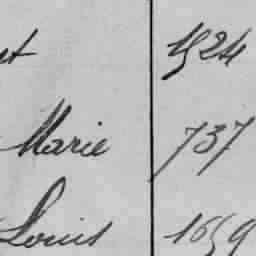 1524
Marie 737
Louis 1659